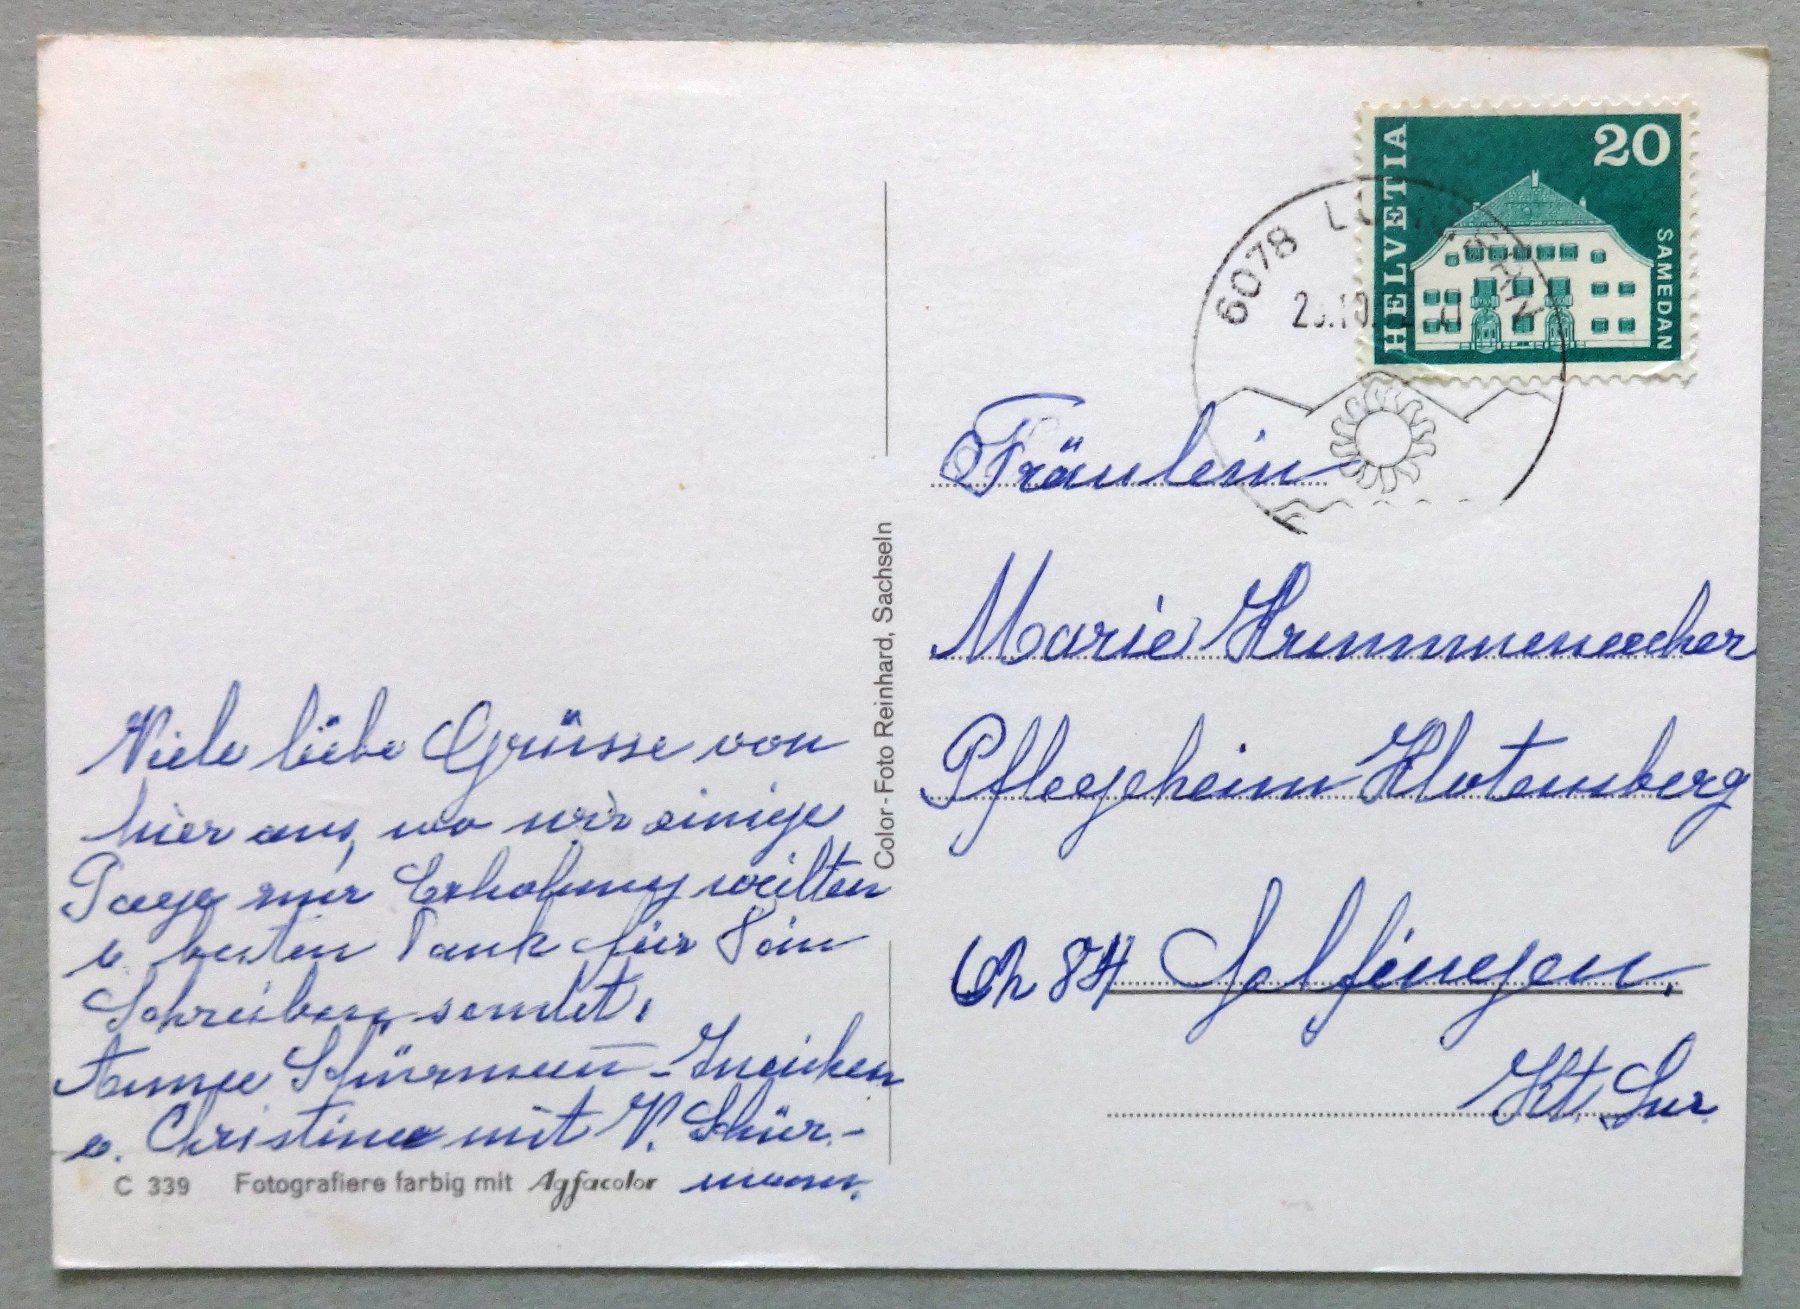 HELVETIA
20
SAMEDAN
6078 LUNGERN
Fräulein
Marie Krummenacher
Pflegeheim
Ch
Kt. Luz.
Viele liebe Grüsse von
hier aus, wo wir einige
Tage zur Erholung weilten
u. besten Dank für Dein
Schreiben sendet.
Schürmann - Ineichen
u. Christine mit V. Schür-
mann.
Color-Foto Reinhard, Sachseln
C 339 Fotografiere farbig mit Agfacolor